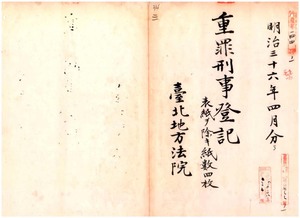 明治三十六年四月分
重罪刑事登記
表紙ヲ除キ紙数四枚
臺北地方法院